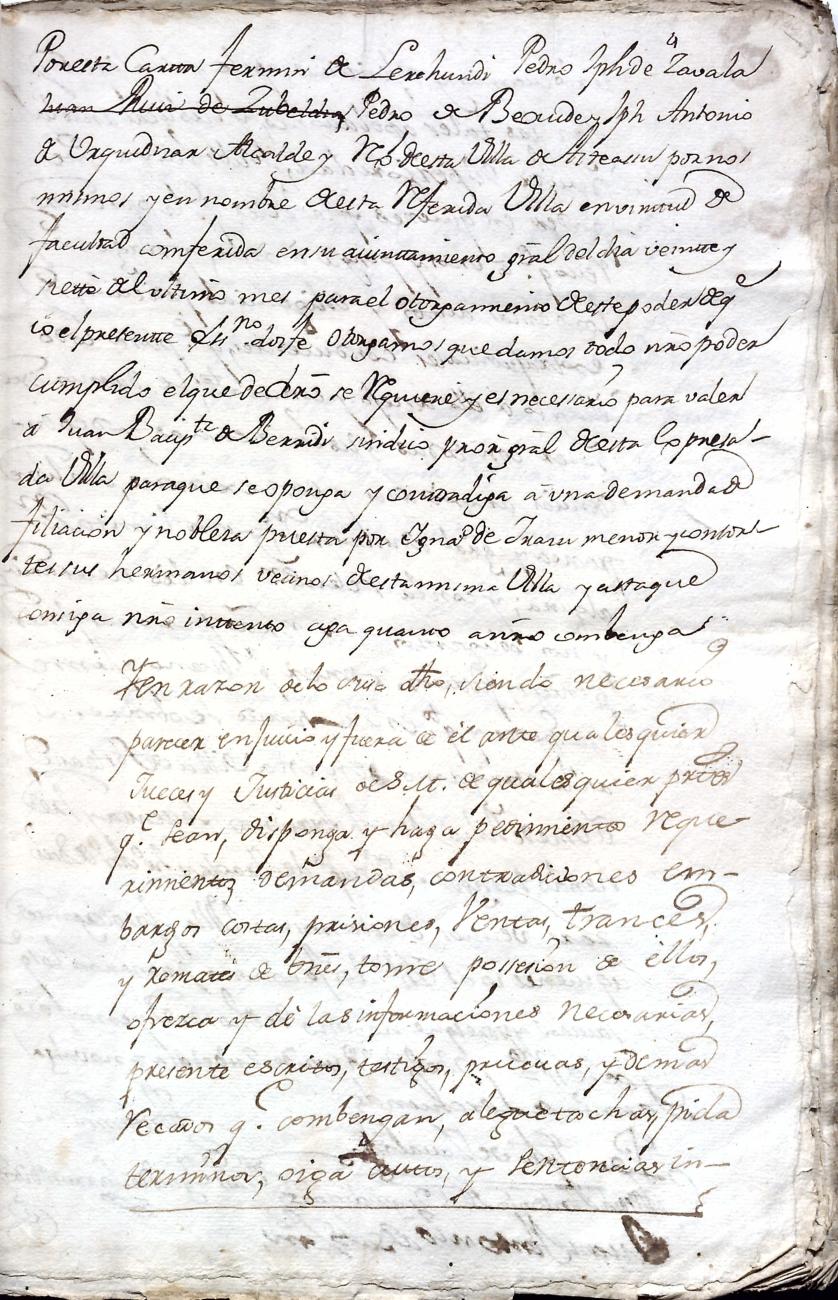 Por esta Carta fermin de Lerchundi Pedro Jph de Zavala
Juan Ruiz de Zubeldia, Pedro de Beraude y Jph Antonio
de Urquidizar Alcalde y Rs desta Villa de Asteasu por nos
mismos y en nombre desta Referida Villa en virtud de
facultad comferida en su aiuntamiento gral del dia veinte y
siette del ultimo mes para el otorgamiento deste poder de qe
io el presentte Essno doi fe otorgamos que damos todo nro poder
cumplido el que de dro se Requiere y es necessario para valer
a Juan Baupte de Berridi sindico pror gral desta Expresa-
da Villa paraque se oponga y contradiga a una demanda de
filiacion y noblesa puesta por Igno de Irazu menor y consor-
tes sus hermanos vecinos desta misma Villa y asta que
consiga nro inttento aga quanto a nro combenga
Y en razon de lo que dho, siendo necesario
parecer en Juicio y fuera de él ante qualesquier
Jueces y Justicias de S.M. de qualesquier prtes
qe sean, disponga y haga pedimientos reque-
rimientos, demandas, contradiciones em-
bargos costas, prisiones, Ventas, trances,
y Remates de vnes, tome possesion de ellos,
ofrezca y dé las informaciones necesarias,
presente escritos, testigos, pruevas, y demas
recados qe combengan, alegue tachas, pida
terminos, oiga autos, y sentencias in-